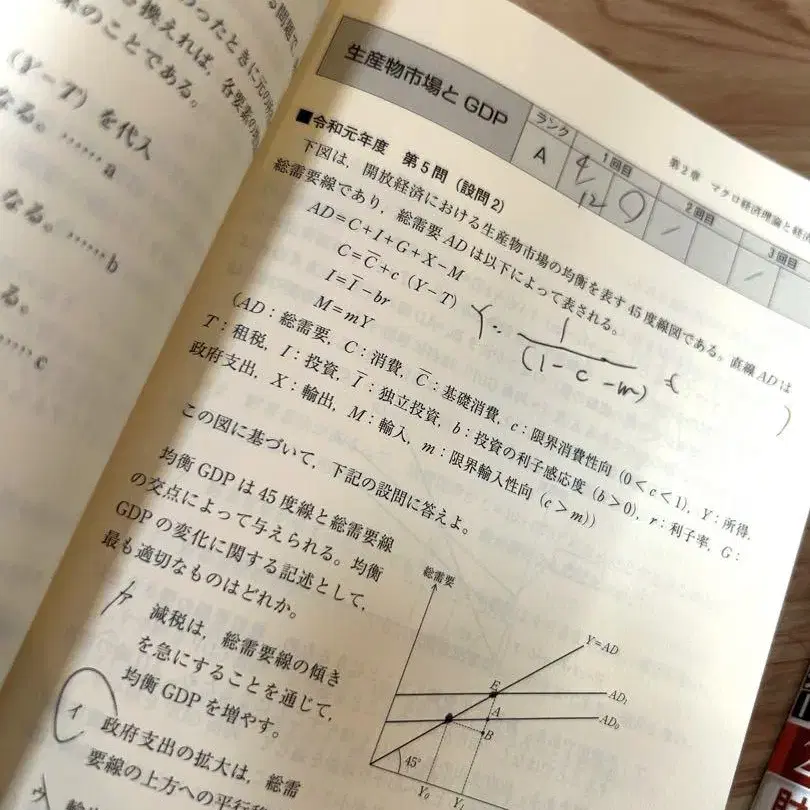 (Y−T)を代入
なる。……a
なる。……b
る。
……c
第2章 マクロ経済理論と経済
生産物市場とGDP
ランク 1回目 2回目 3回目
A 4/12
■令和元年度 第5問(設問2)
下図は,開放経済における生産物市場の均衡を表す45度線図である。直線ADは
総需要線であり,総需要ADは以下によって表される。
AD=C+I+G+X−M
C=C̄+c(Y−T)
I=Ī−br
M=mY
Y= 1
(1−c−m)
(AD:総需要,C:消費,C̄:基礎消費,c:限界消費性向(0<c<1),Y:所得,
T:租税,I:投資,Ī:独立投資,b:投資の利子感応度(b>0),r:利子率,G:
政府支出,X:輸出,M:輸入,m:限界輸入性向(c>m))
この図に基づいて,下記の設問に答えよ。
均衡GDPは45度線と総需要線
の交点によって与えられる。均衡
GDPの変化に関する記述として,
最も適切なものはどれか。
ア 減税は,総需要線の傾き
を急にすることを通じて,
均衡GDPを増やす。
イ 政府支出の拡大は,総需
要線の上方への平行移
ウ
総需要
Y=AD
E
AD₁
A
AD₀
B
45°
Y₀ Y₁